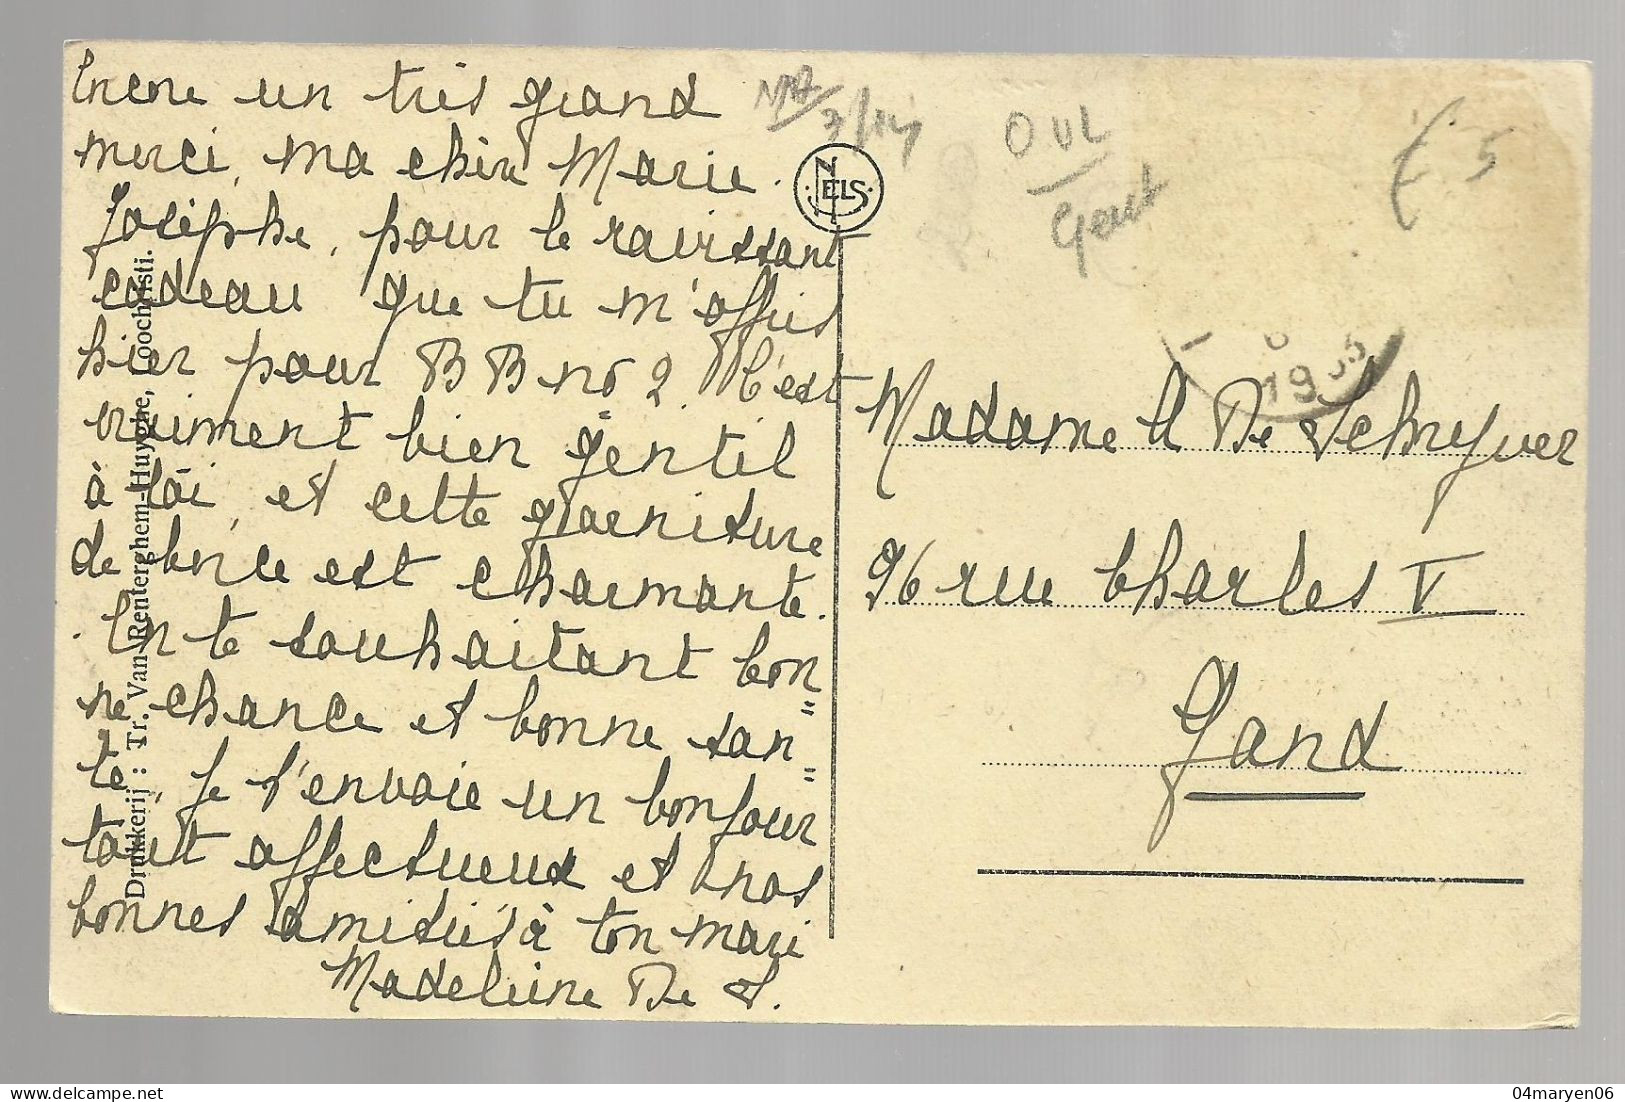 Encore un très grand
merci, ma chère Marie
Josèphe, pour le ravissant
cadeau que tu m'offris
hier pour BB no 2. C'est
vraiment bien gentil
à toi, et cette garniture
de est charmante.
En te souhaitant bon=
ne chance et bonne san=
té, je t'envoie un bonjour
tout affectueux et nos
bonnes amitiés à ton mari
Madeleine De S.
Drukkerij: Tr. Van Renterghem-Huyghe, Loochristi.
NELS
3/14
OVL
Gent
€ 5
1935
Madame A De Schryver
96 rue Charles V
Gand
04maryen06